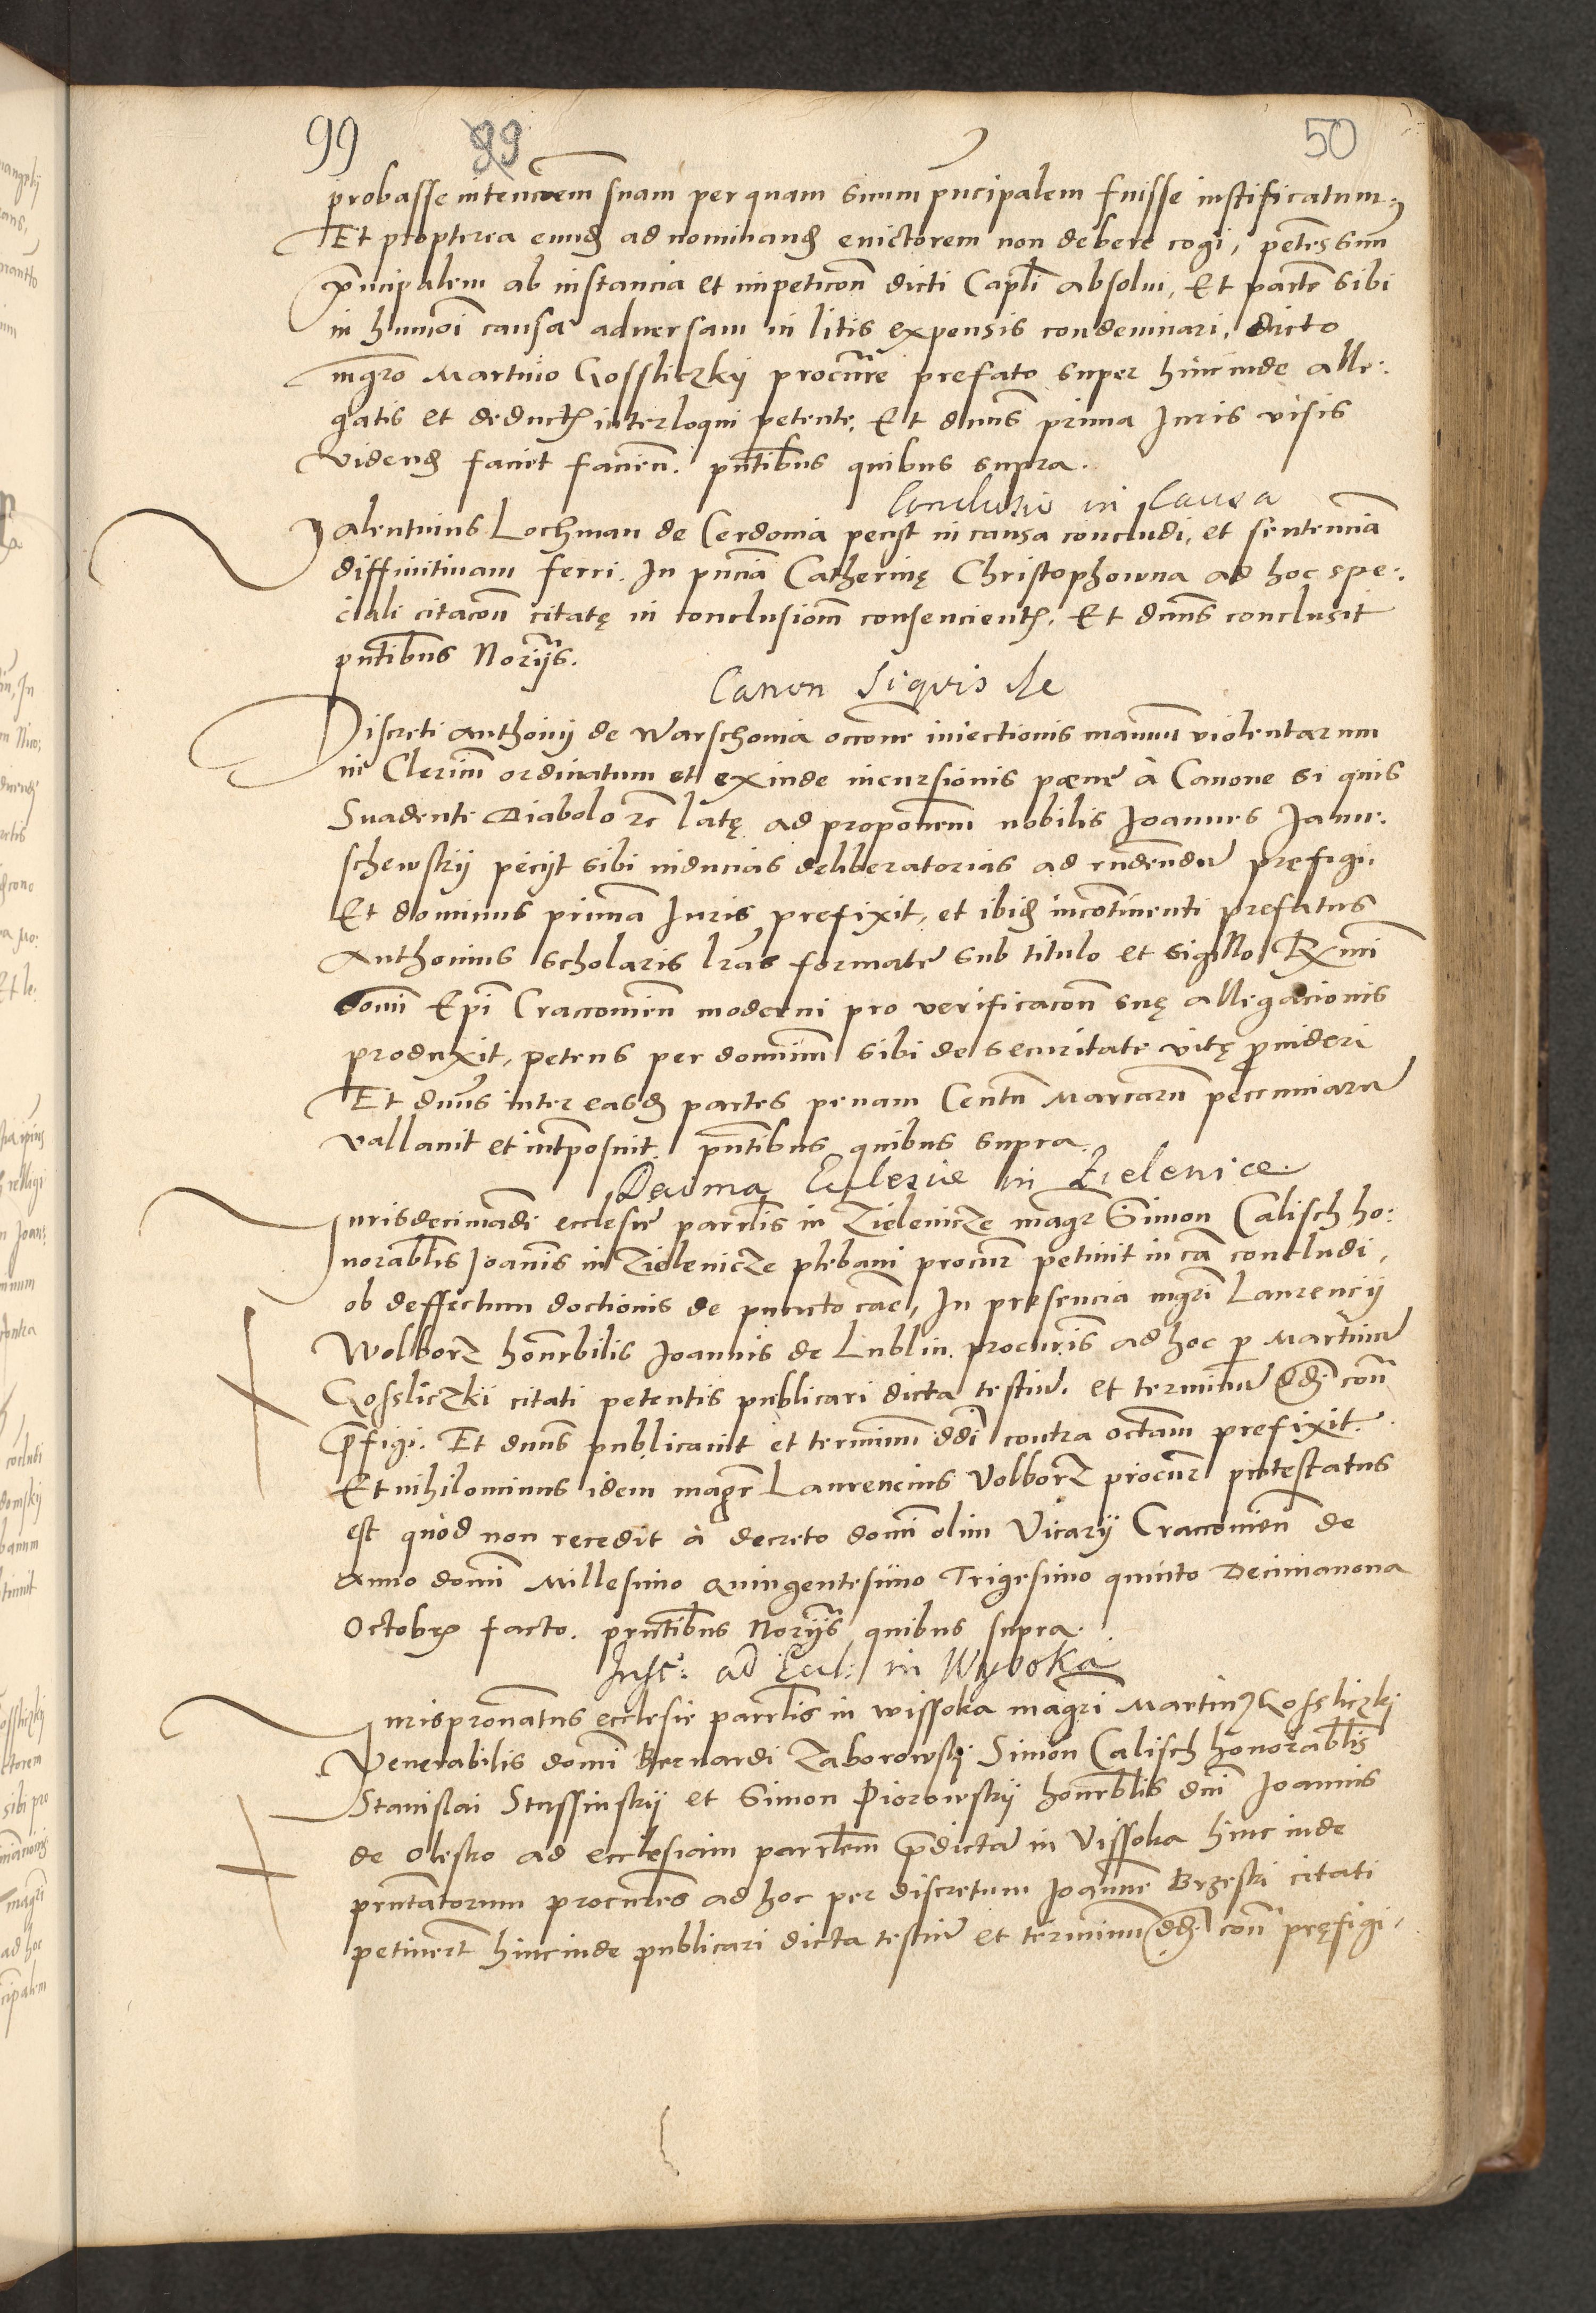 99 99 50
probasse intencõem suam per quam suum pñcipalem fuisse iustificatum,
Et propterea eund ad nominand evictorem non debere cogi, petens suũ
prĩncipalem ab instancia et impeticoñ dicti Capli absolvi, Et partẽ sibi
in hmõi causa adversam in litis expensis condemnari, dicto
mgro Martino Gosslickzky procurẽ prefato super hincinde alle:
gatis et deductꝭ interloqui petente. Et dnus prima Iuris visis
vidend faciet facien̄. pn̄tibus quibus supra.
Conclusio in Causa
Valentinus Lochman de Cerdonia peciit in causa concludi, et sentenciã
diffinitivam ferri. In pn̄ciã Catherinę Christophowna ad hoc spe:
ciali citacoñ citatę in conclusionẽ consencientꝭ. Et dnus conclusit
pn̄tibus Noriis.
Canon Siquis de
Discreti Anthonij de Warschovia occone iniectionis manuum violentarum
in Clericũ ordinatum et exinde incursionis pœne à Canone si quis
Suadente Diabolo &c latę ad proponem̃ nobilis Joannes Janu:
schewskij peciit sibi inducias deliberatorias ad rñdendũ prefigi.
Et dominus primã Iuris prefixit, et ibid incontinenti prefatus
Anthonius scholaris lras formatã sub titulo et sigillo Rx̃mi
domĩ Epĩ Cracovien̄ moderni pro verificacoñ suę allegacionis
produxit, petens per dominũ sibi de securitate vitę provideri
Et dnus inter easd partes penam Centũ Marcarũ pecuniarũ
vallavit et intposuit. pn̄tibus quibus supra.
Decima Eclesie in Zielenice
Iurisdecimãdi ecclesie parrlis in Zielenicze magr Simon Calisch ho:
norablis Joanis in Zielenicze plebani procur petivit in cã concludi,
ob deffectum doctionis de puncto cae, In presencia mgri Laurencij
Wolborz honrbilis Joannis de Lublin procuris ad hoc p Martinũ
Gosliczki citati petentis publicari dicta testiũ. et terminũ dd coñ
p̃figi. Et dnus publicavit et terminũ ddĩ contra octam prefixit.
Et nihilominus idem magr Laurencius Volborz procur protestatus
est quod non recedit à decreto domĩ olim Vicarij Cracovien̄ de
Anno domĩ Millesimo Quingentesimo Trigesimo quinto Decimanona
Octobrꝭ facto. pñtibus Noriis quibus supra.
Inst: ad Eccl: in Wysoka
Iurispronatus ecclesie parrlis in wissoka magri Martinꝰ Gosliczkj
Venerabilis domĩ Bernardi Zaborowskj Simon Calisch honorablis
Stanislai Stassinskij et Simon Piorowskij honrblis dnĩ Joannis
de Olesko ad ecclesiam parrlem p̃dictã in Vissoka hinc inde
prñtatorum procures ad hoc per discretum Joannẽ Brzeski citati
petiverũt hincinde publicari dicta testiũ et terminũ dd coñ pręfigi.